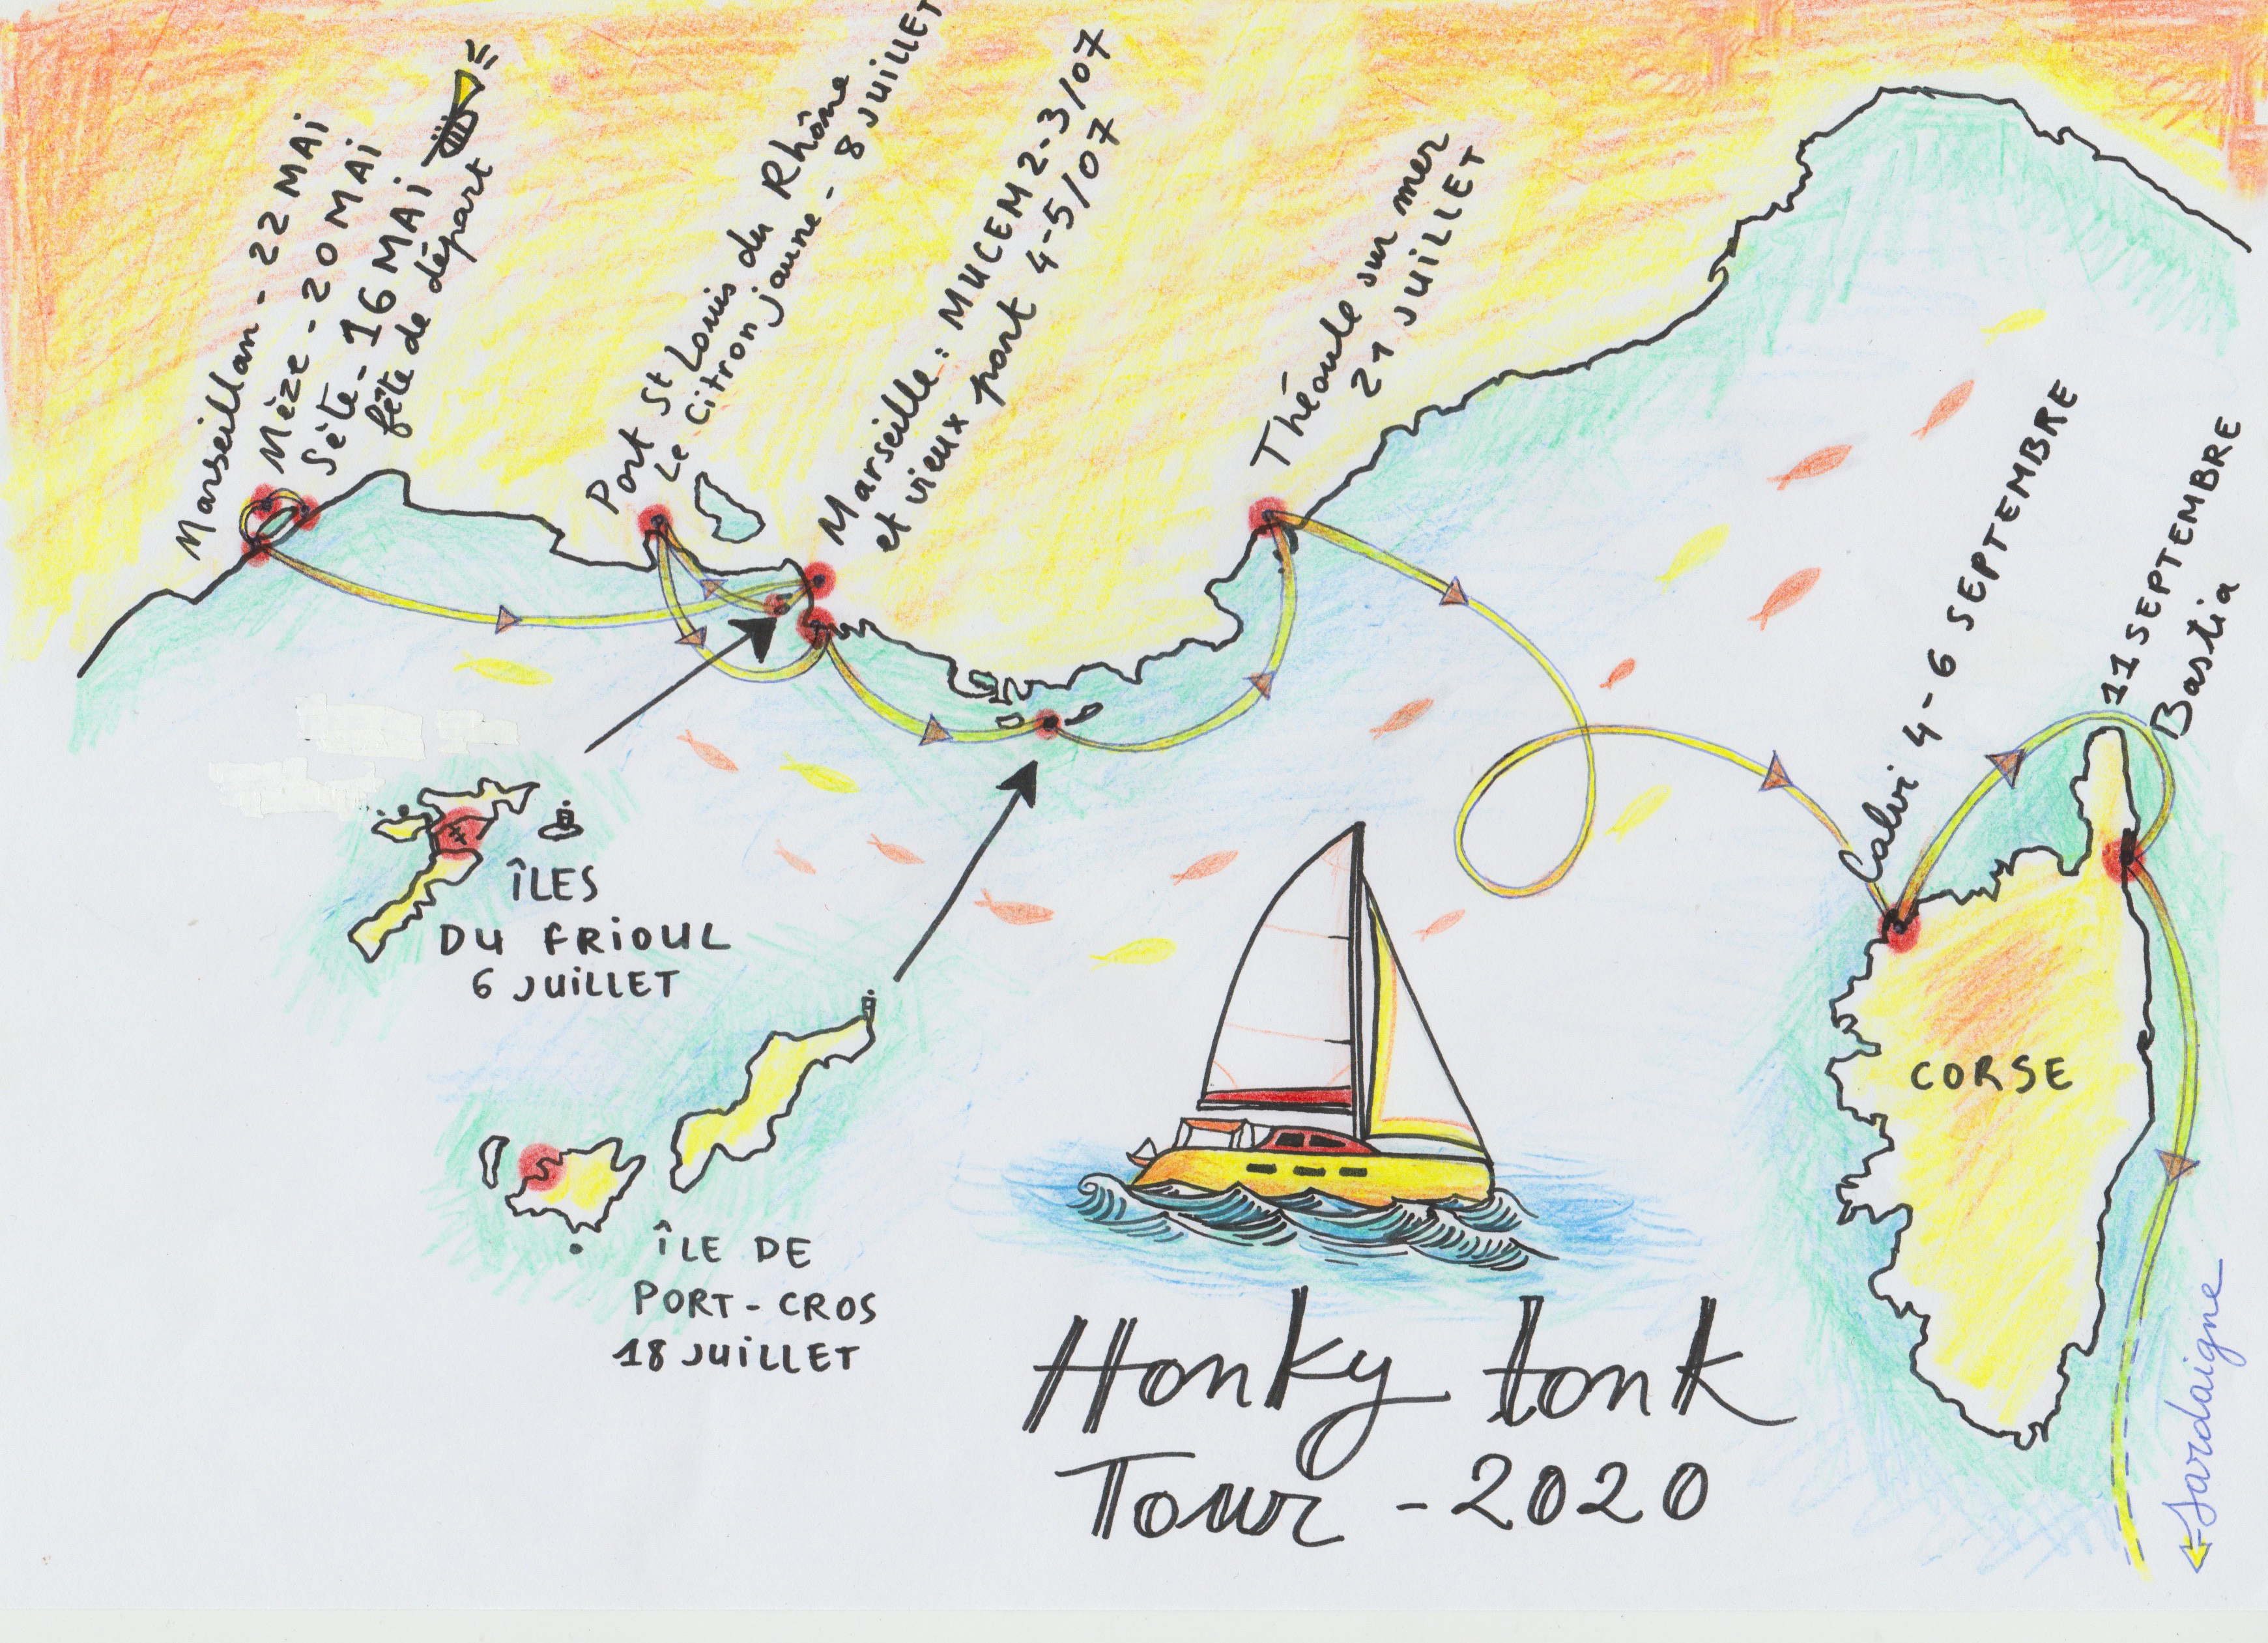 Marseillan - 22 MAi
Mèze - 20 MAi
Sète - 16 MAi
fête de départ
Port St Louis du Rhône
Le Citron jaune - 8 JUILLET
Marseille : MUCEM 2-3/07
et vieux port 4-5/07
Théoule sur mer
21 JUILLET
Calvi 4-6 SEPTEMBRE
11 SEPTEMBRE
Bastia
ÎLES
DU FRIOUL
6 JUILLET
CORSE
ÎLE DE
PORT-CROS
18 JUILLET
Honky tonk
Tour - 2020
Sardaigne